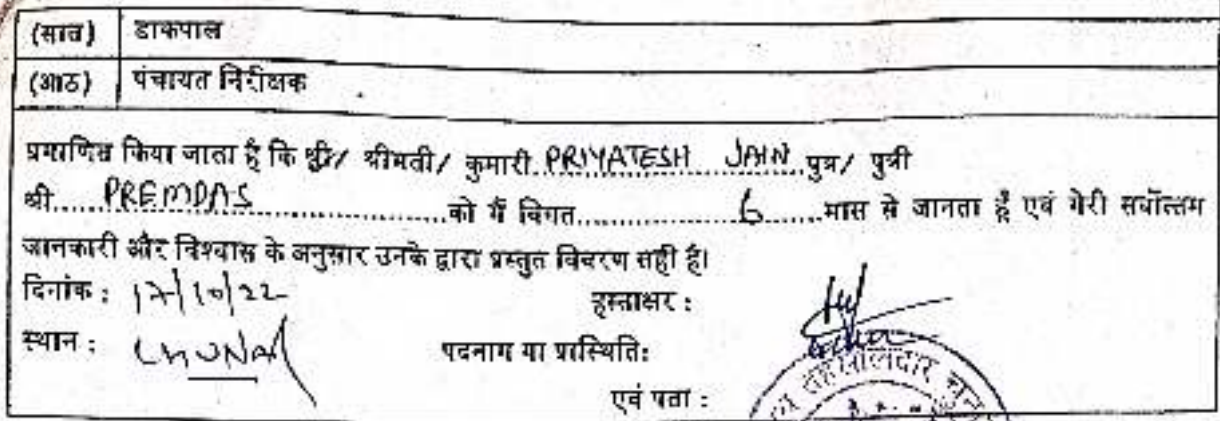 (सात) डाकपाल
(आठ) पंचायत निरीक्षक
प्रमाणित किया जाता है कि श्री/ श्रीमती/ कुमारी PRIYATESH JAIN पुत्र/ पुत्री
श्री.....PREMDAS.....को मैं विगत.....6.....मास से जानता हूँ एवं मेरी सर्वोत्तम
जानकारी और विश्वास के अनुसार उनके द्वारा प्रस्तुत विवरण सही है।
दिनांक : 17/10/22 हस्ताक्षर :
स्थान : CHUNAR पदनाम या प्रास्थिति:
एवं पता :
तहसीलदार